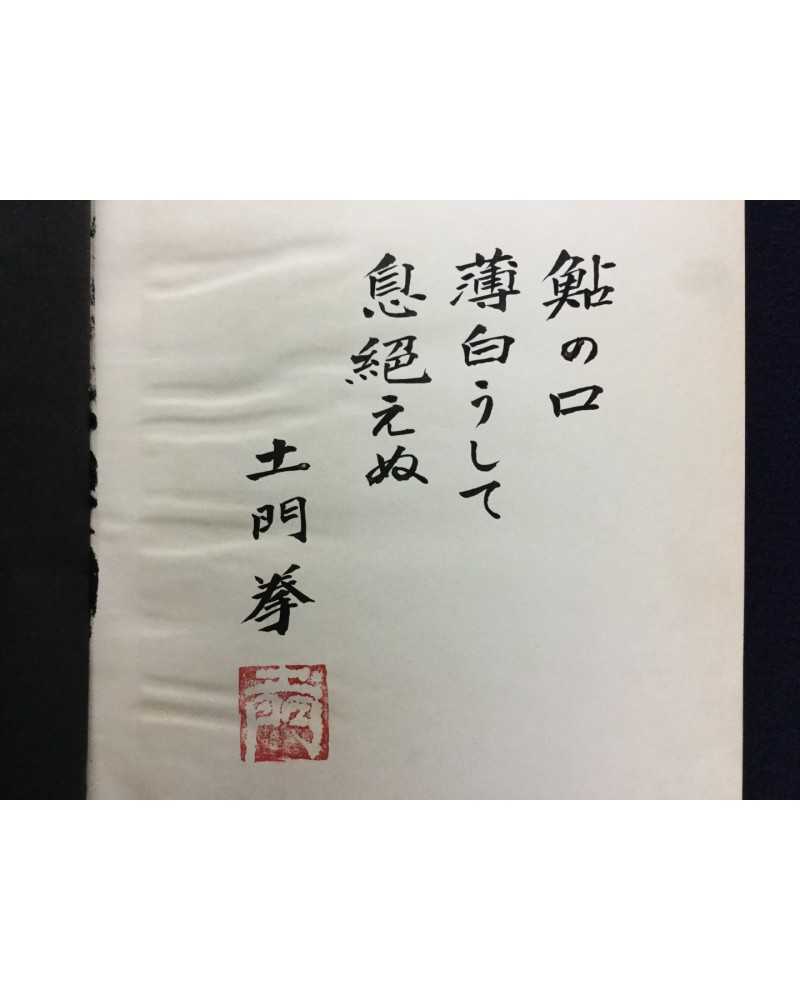 鮎の口
薄白うして
息絕えぬ
土門拳
土門